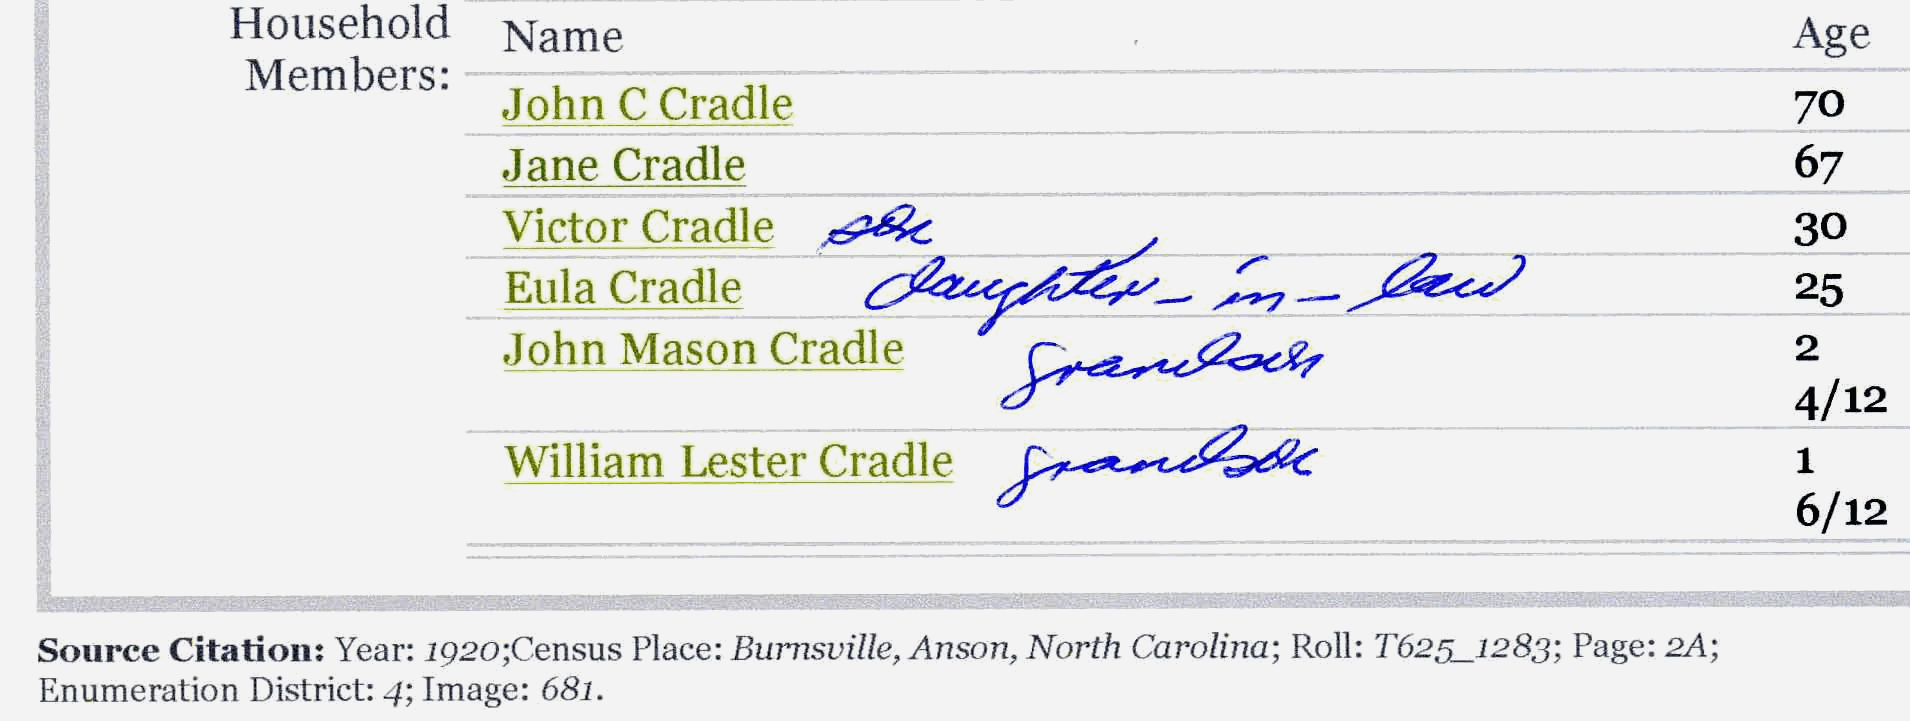 Household Members: Name Age
John C Cradle 70
Jane Cradle 67
Victor Cradle son 30
Eula Cradle daughter-in-law 25
John Mason Cradle grandson 2 4/12
William Lester Cradle grandson 1 6/12
Source Citation: Year: 1920;Census Place: Burnsville, Anson, North Carolina; Roll: T625_1283; Page: 2A;
Enumeration District: 4; Image: 681.